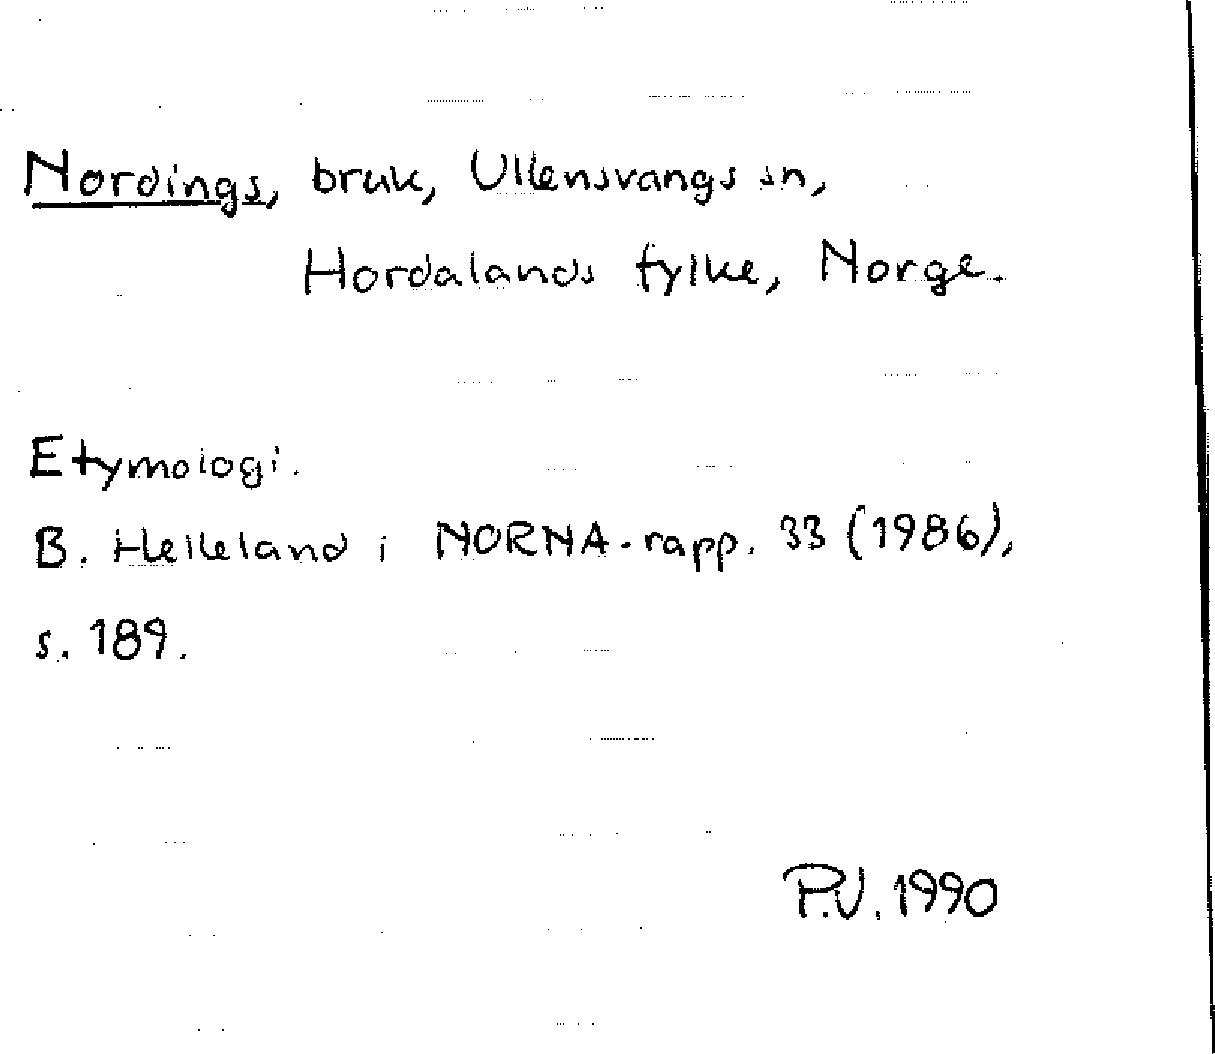 Nordings, bruk, Ullensvangs sn,
Hordalands fylke, Norge.
Etymologi.
B. Helleland i NORNA-rapp. 33 (1986),
s. 189.
P.V. 1990